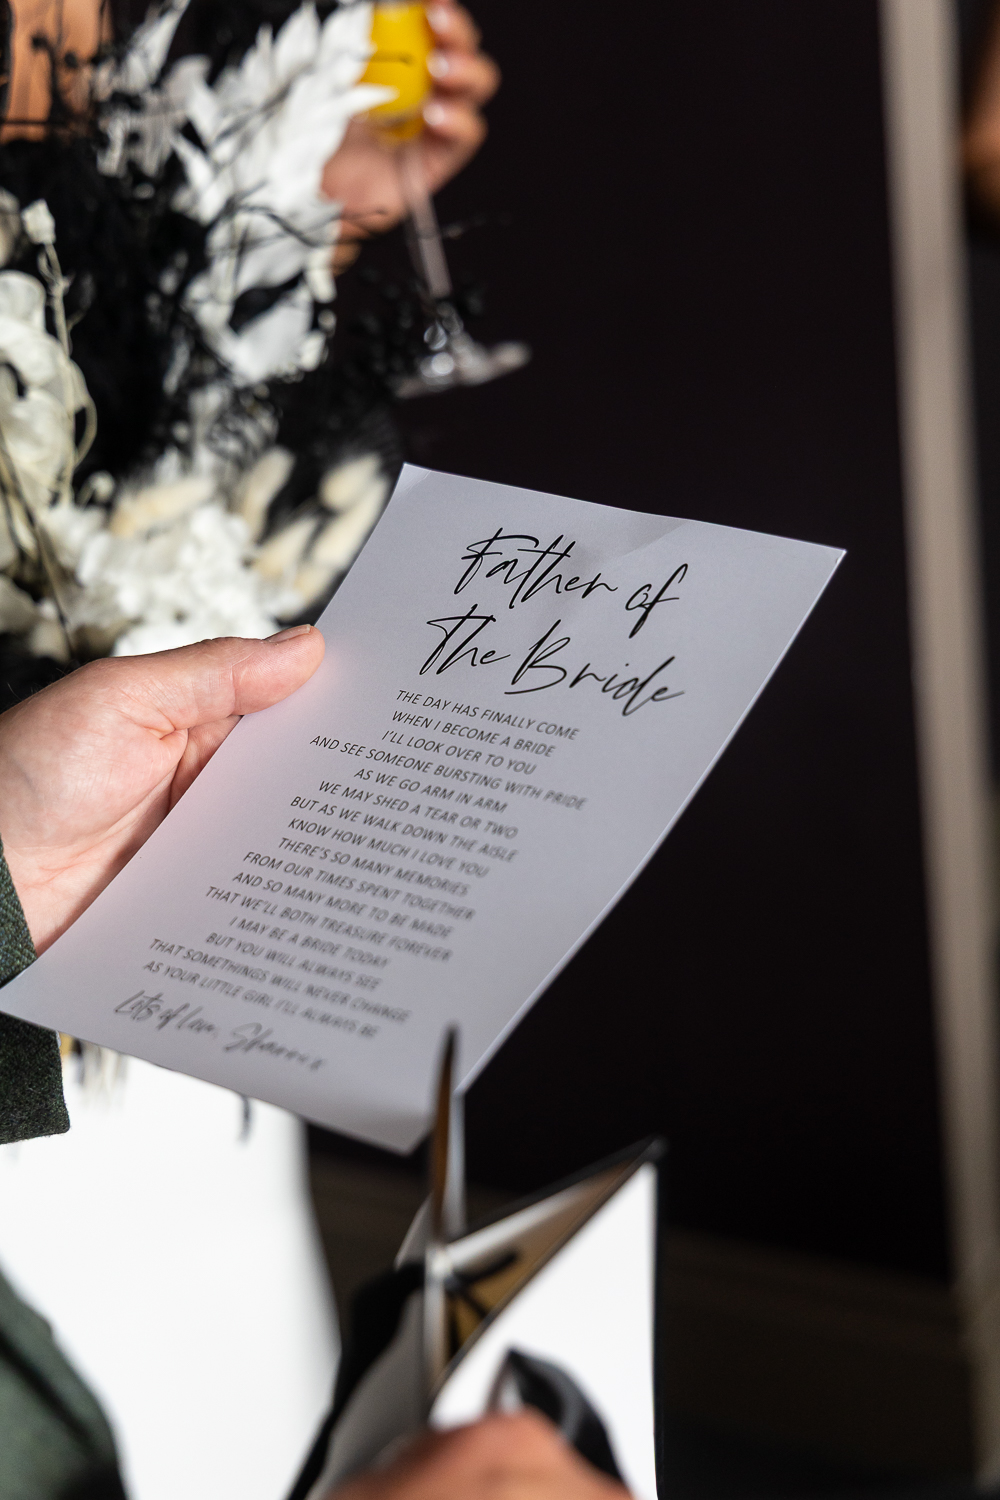 Father of
The Bride
THE DAY HAS FINALLY COME
WHEN I BECOME A BRIDE
I'LL LOOK OVER TO YOU
AND SEE SOMEONE BURSTING WITH PRIDE
AS WE GO ARM IN ARM
WE MAY SHED A TEAR OR TWO
BUT AS WE WALK DOWN THE AISLE
KNOW HOW MUCH I LOVE YOU
THERE'S SO MANY MEMORIES
FROM OUR TIMES SPENT TOGETHER
AND SO MANY MORE TO BE MADE
THAT WE'LL BOTH TREASURE FOREVER
I MAY BE A BRIDE TODAY
BUT YOU WILL ALWAYS SEE
THAT SOMETHINGS WILL NEVER CHANGE
AS YOUR LITTLE GIRL I'LL ALWAYS BE
Lots of love,